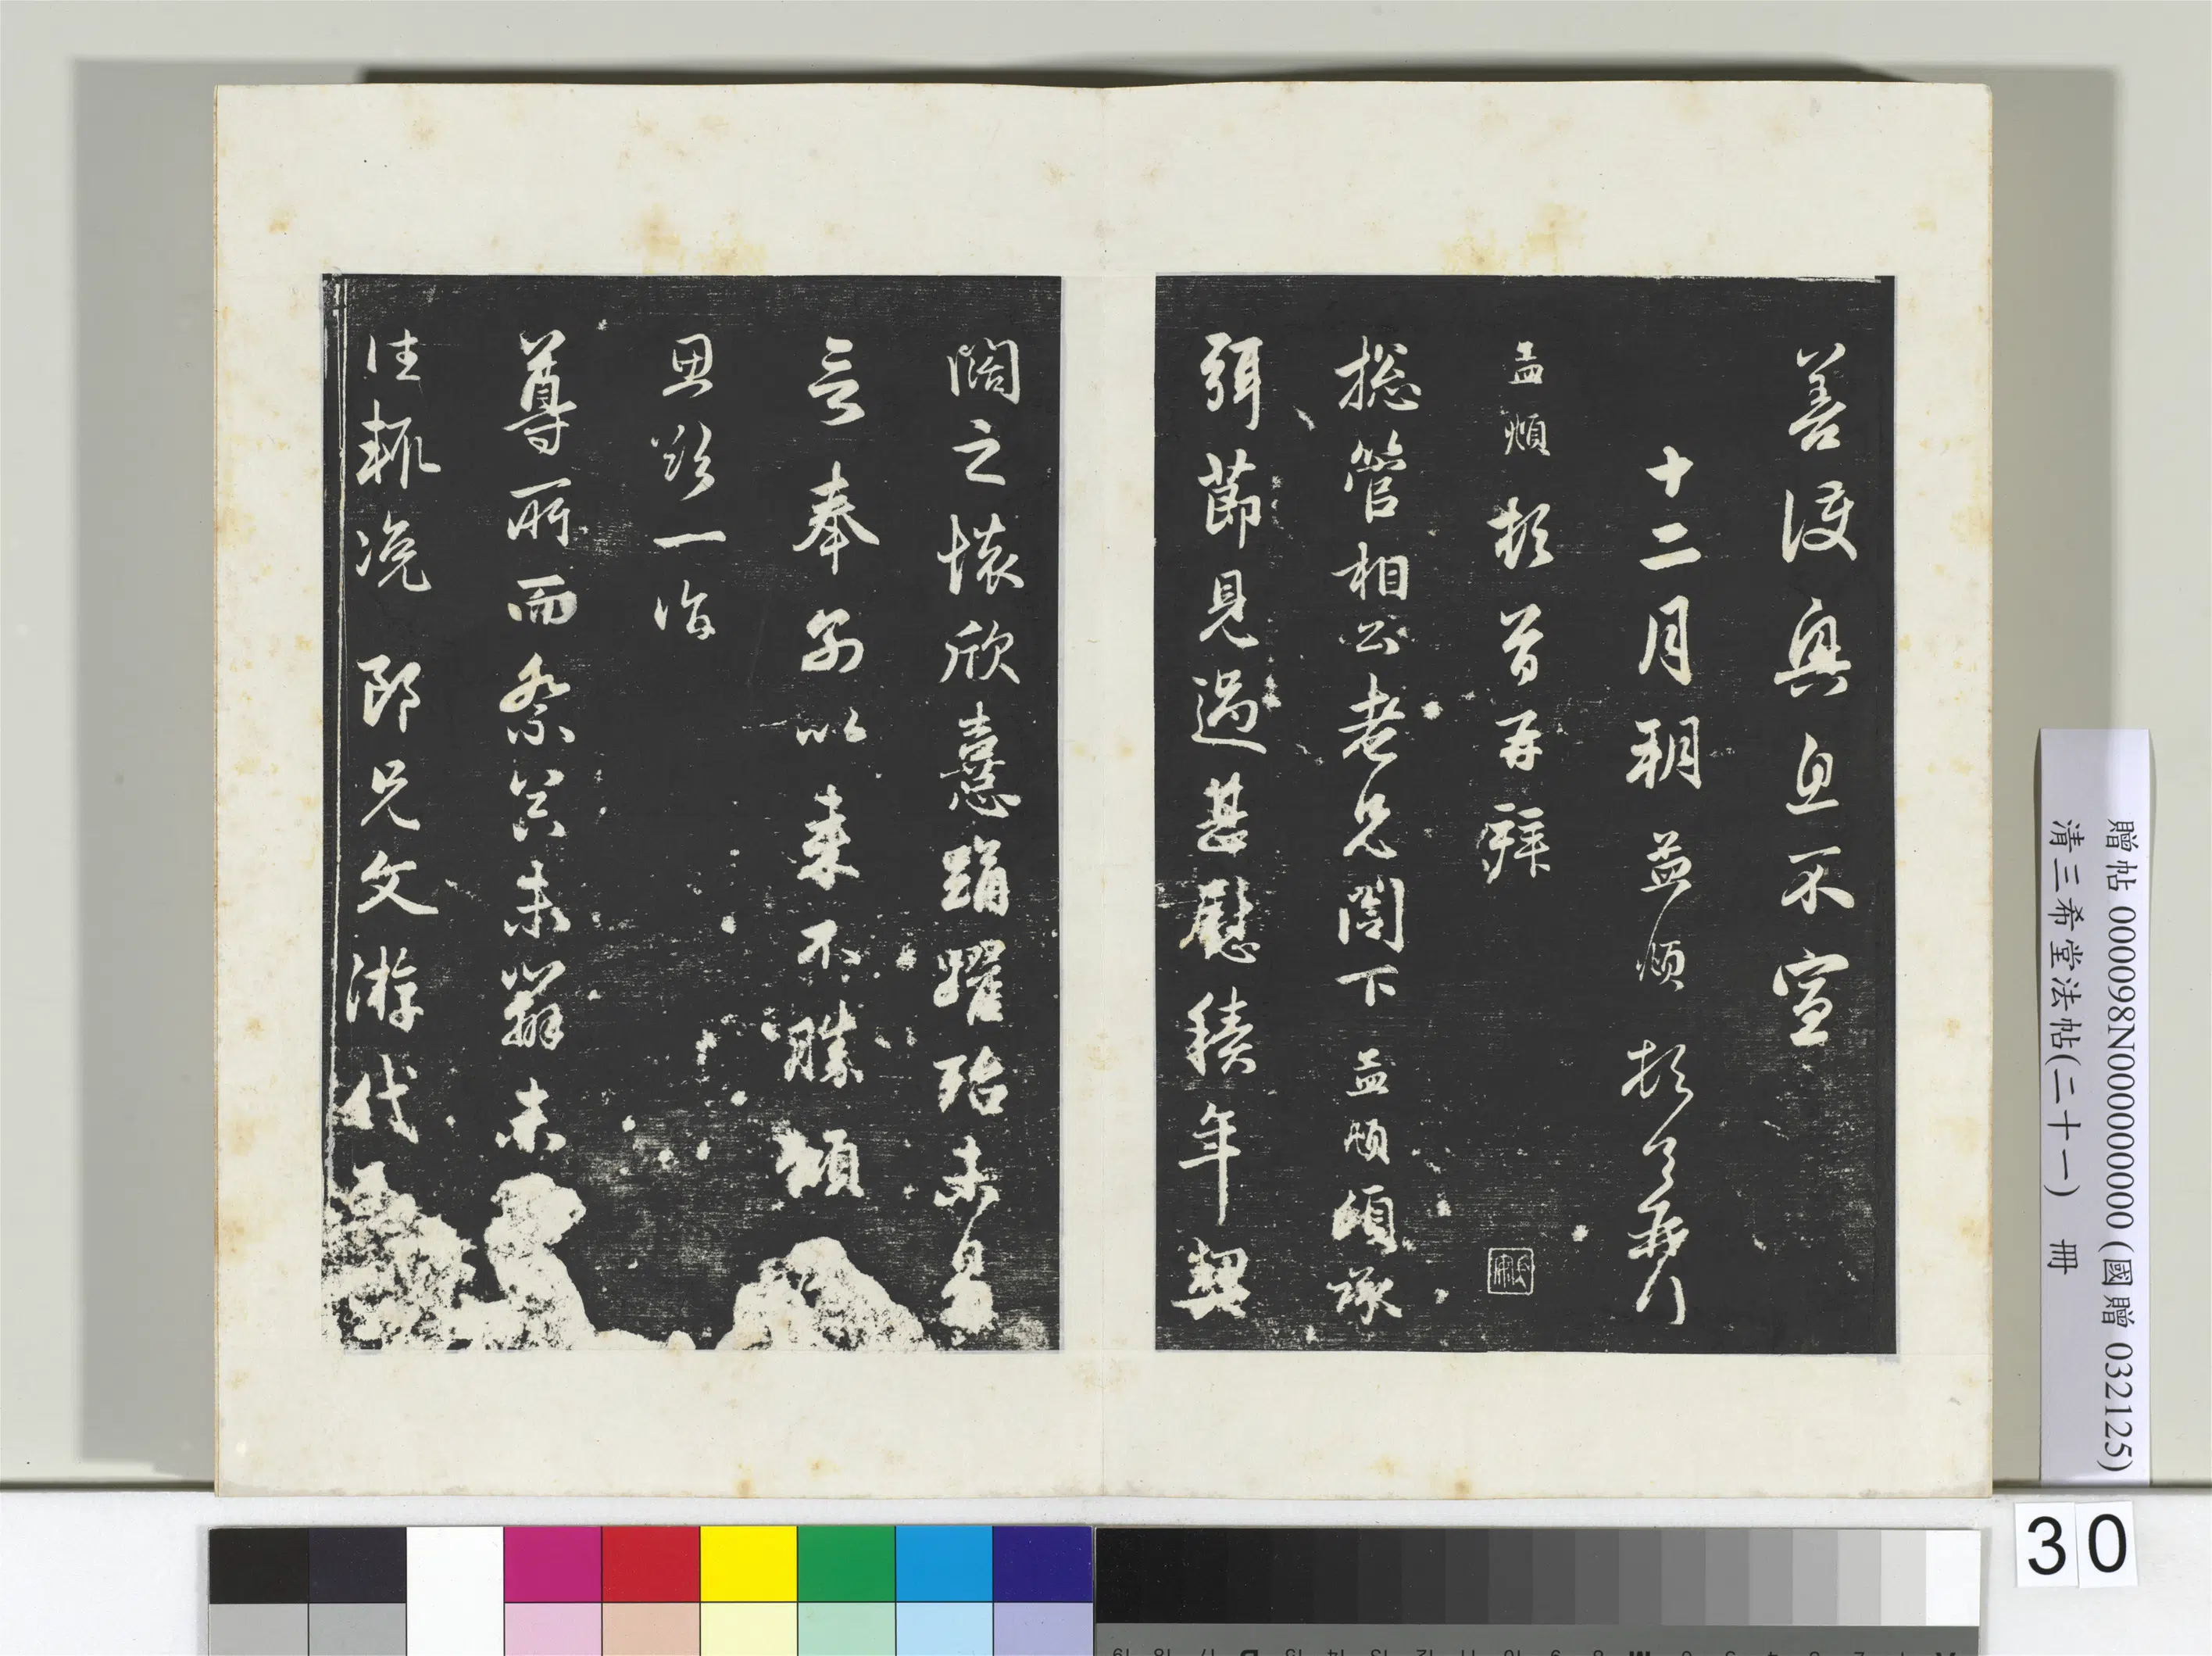 善護興息不宣
十二月朔孟頫頓首再拜
孟頫頓首再拜
捴管相公老兄閤下孟頫頃承
弭節見過甚慰積年契
闊之懷欣憙踊躍殆未易
言奉別以來不勝傾
思欲一詣
尊所而祭冥未辦未
佳輒浼郎兄文游代
贈帖 000098N000000000 (國贈 032125)
清三希堂法帖(二十一) 冊
30